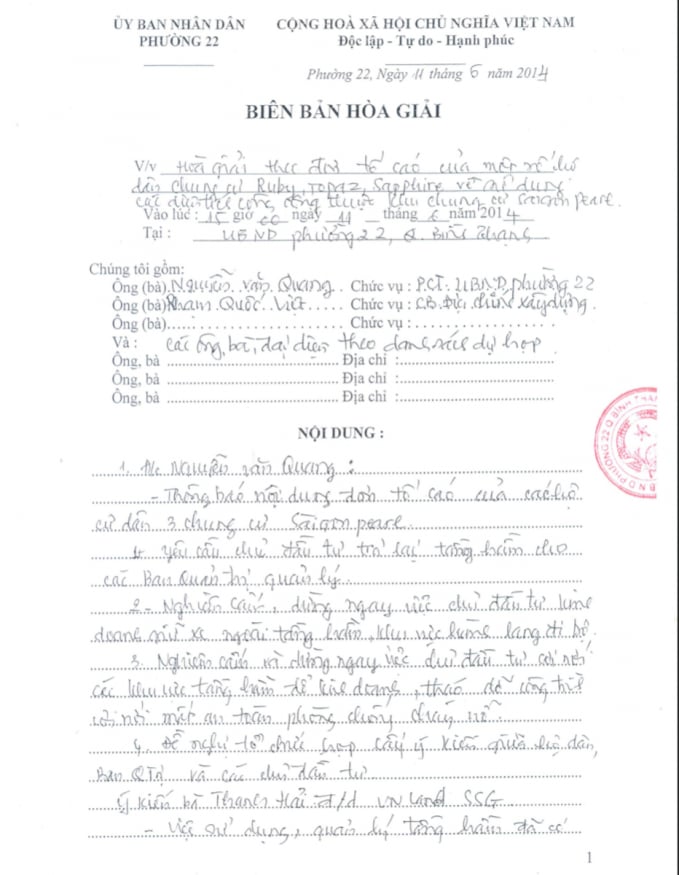 ỦY BAN NHÂN DÂN
PHƯỜNG 22
CỘNG HOÀ XÃ HỘI CHỦ NGHĨA VIỆT NAM
Độc lập - Tự do - Hạnh phúc
Phường 22, Ngày 11 tháng 6 năm 2014
BIÊN BẢN HÒA GIẢI
V/v Hoà giải theo đơn tố cáo của một số hộ
dân chung cư Ruby, Topaz, Sapphire về sử dụng
các diện tích công cộng thuộc khu chung cư Saigon pearl.
Vào lúc : 15 giờ 00 ngày 11 tháng 6 năm 2014
Tại : UBND phường 22, Q. Bình Thạnh
Chúng tôi gồm:
Ông (bà) Nguyễn Văn Quang Chức vụ : P.CT. UBND phường 22
Ông (bà) Phạm Quốc Việt Chức vụ : C.B. Địa chính xây dựng
Ông (bà) Chức vụ :
Và : các ông, bà, đại diện theo danh sách dự họp
Ông, bà Địa chỉ :
Ông, bà Địa chỉ :
Ông, bà Địa chỉ :
NỘI DUNG :
1. Nguyễn Văn Quang :
- Thông báo nội dung đơn tố cáo của các hộ
cư dân 3 chung cư Saigon pearl
1. yêu cầu chủ đầu tư trả lại tầng hầm cho
các Ban Quản trị quản lý
2 - Nghiêm cấm, dừng ngay việc chủ đầu tư kinh
doanh giữ xe ngoài tầng hầm, khu vực hành lang đi bộ
3. Nghiêm cấm và dừng ngay việc chủ đầu tư cơi nới
các khu vực tầng hầm để kinh doanh, tháo dỡ công trình
cơi nới mất an toàn phòng chống cháy nổ
4. Đề nghị tổ chức họp lấy ý kiến giữa hộ dân,
Ban QTrị và các chủ đầu tư
Ý kiến bà Thanh Hải đ/d VN Land SSG
- Việc sử dụng, quản lý tầng hầm đã có
1